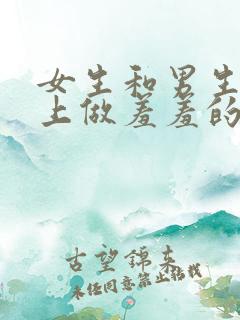 女生和男生
上做羞羞的
古望锦来
未经同意禁止转载